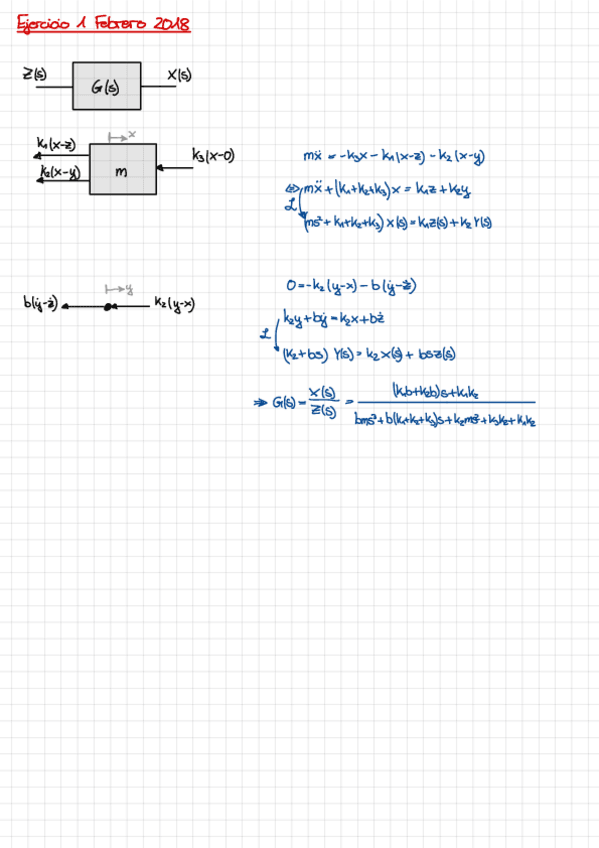 Ejercicio 1 Febrero 2018
Z(s) G(s) X(s)
x
k₁(x-z)
k₂(x-y) m k₃(x-0)
mẍ = -k₃x - k₁(x-z) - k₂(x-y)
⇔ mẍ + (k₁+k₂+k₃)x = k₁z + k₂y
L
(ms²+k₁+k₂+k₃) X(s) = k₁Z(s) + k₂Y(s)
y
b(ẏ-ż) k₂(y-x)
0 = -k₂(y-x) - b(ẏ-ż)
k₂y + bẏ = k₂x + bż
L
(k₂+bs) Y(s) = k₂X(s) + bsZ(s)
⇒ G(s) = X(s)/Z(s) = (k₁b+k₂b)s+k₁k₂ / bms³+b(k₁+k₂+k₃)s+k₂ms²+k₃k₂+k₁k₂